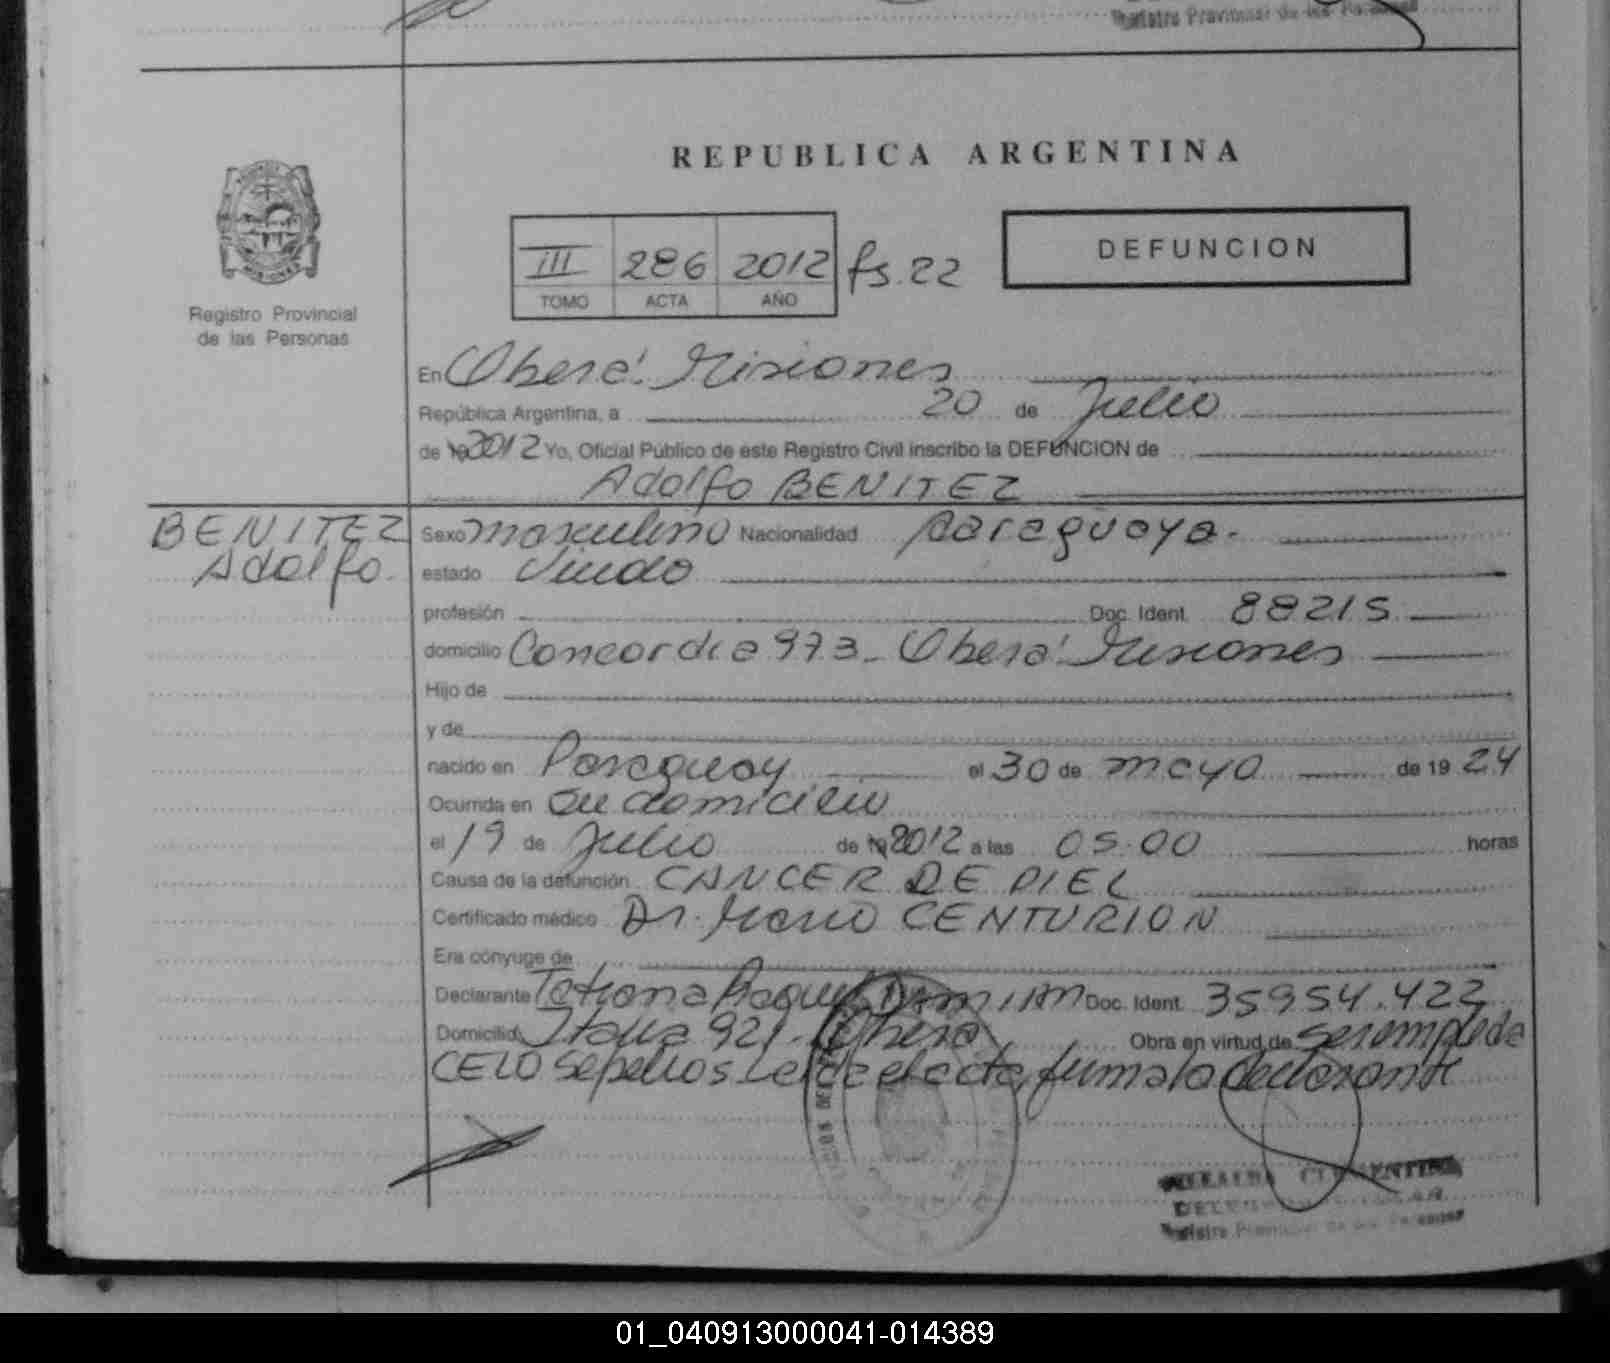 Registro Provincial de las Personas
REPUBLICA ARGENTINA
III 286 2012 fs. 22
TOMO ACTA AÑO
DEFUNCION
Registro Provincial
de las Personas
En Oberá. Misiones
República Argentina, a 20 de Julio
de 19 2012 Yo, Oficial Público de este Registro Civil inscribo la DEFUNCION de
Adolfo BENITEZ
BENITEZ
Adolfo
Sexo masculino Nacionalidad paraguaya.
estado Viudo
profesión Doc. Ident. 88215
domicilio Concordia 973 - Oberá. Misiones
Hijo de
y de
nacido en Paraguay el 30 de mayo de 19 24
Ocurrida en su domicilio
el 19 de Julio de 19 2012 a las 05.00 horas
Causa de la defunción CANCER DE PIEL
Certificado médico Dr. Mario CENTURION
Era cónyuge de
Declarante Tatiana Raquel Doc. Ident. 35954.422
Domicilio Italia 921 - Oberá Obra en virtud de ser empleda
CELO Sepelios Leída el acta, firma la declarante
Registro Provincial de las Personas
01_040913000041-014389